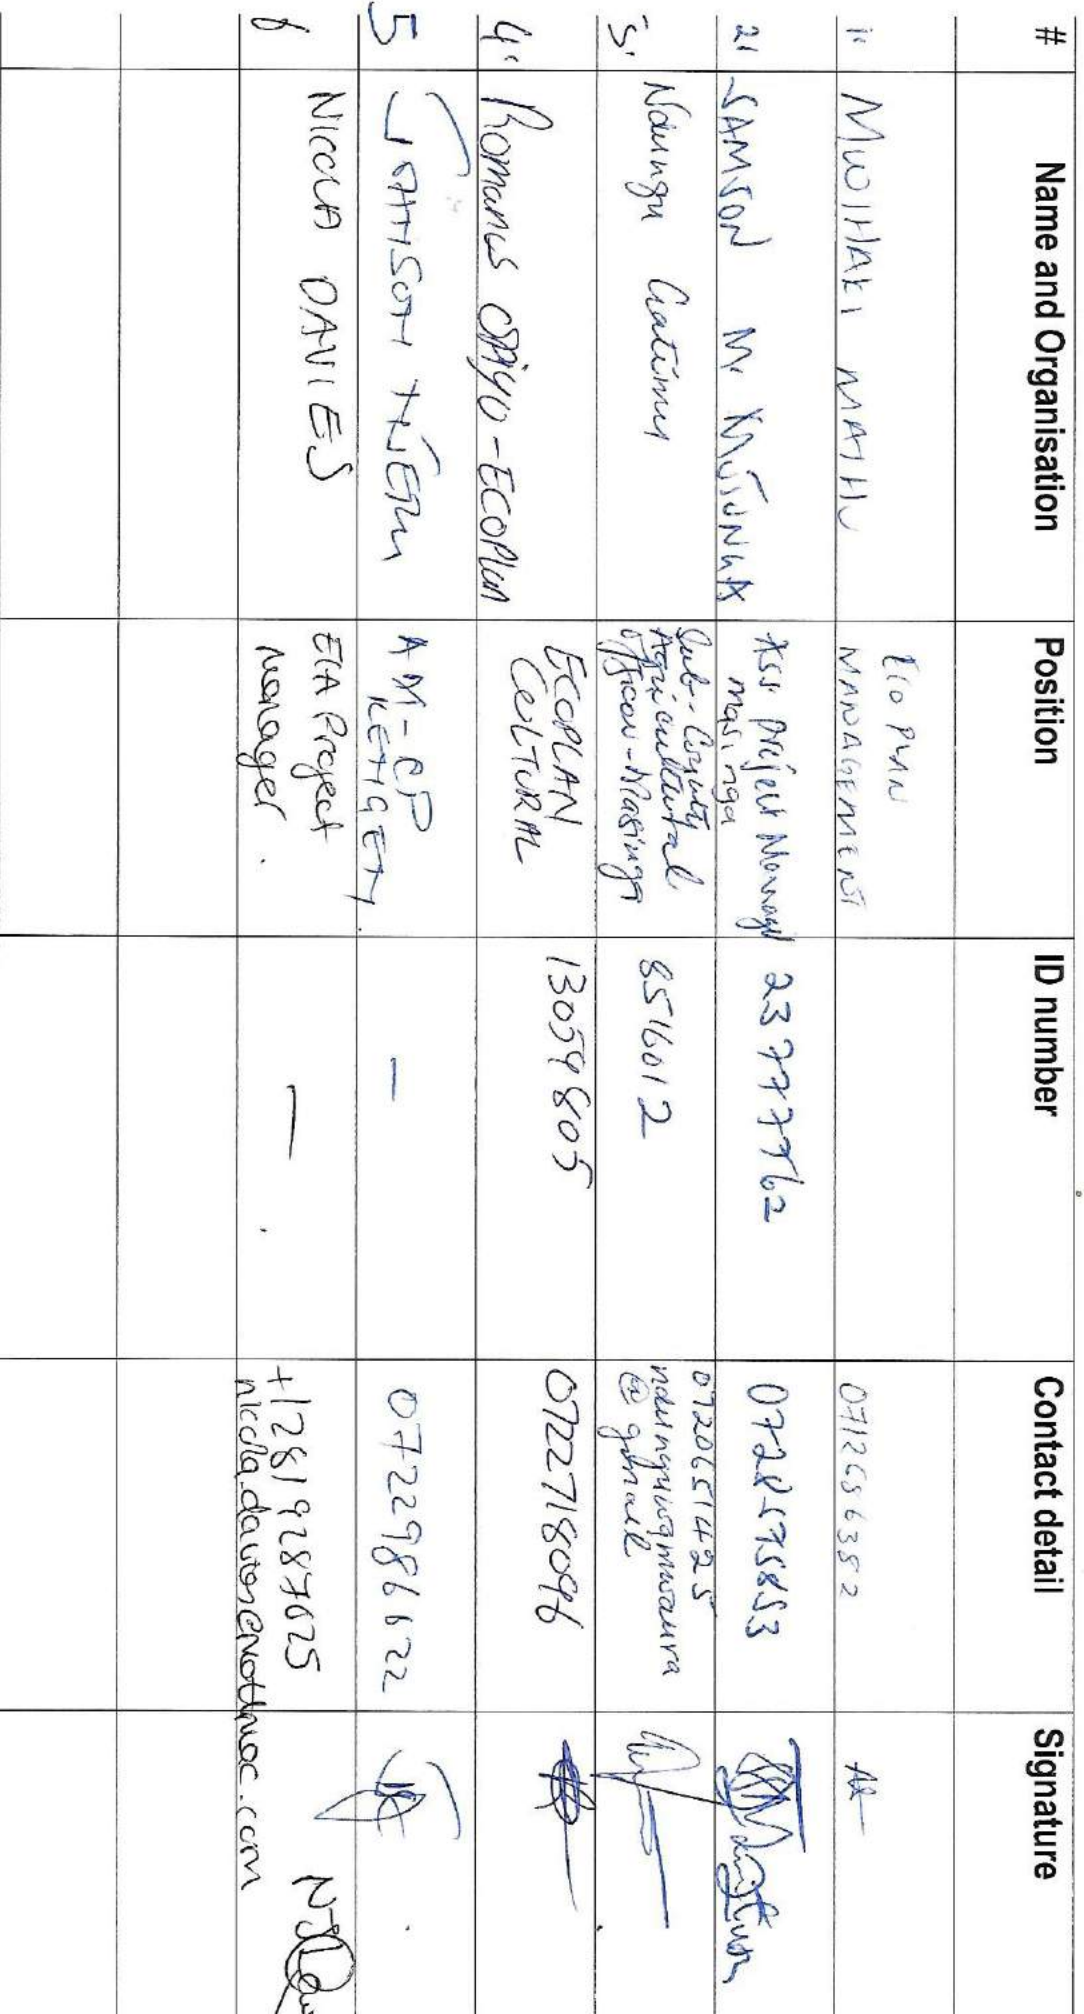 # Name and Organisation Position ID number Contact detail Signature
1. MWIHAKI MATHU ECOPLAN MANAGEMENT 0712656382
2. SAMSON M. Ass. project Manager masinga 23777762
3. Ndungu Gatimu Sub-County Agricultural officer-Masinga 8516012 0720651425 @ gmail
4. Romanus OPIYO-ECOPlan ECOPLAN CULTURAL 13059805 0722718096
5 AM-CP KENGEN – 0722986622
6 NICOLA DAVIES EIA Project Manager. – +12819287025